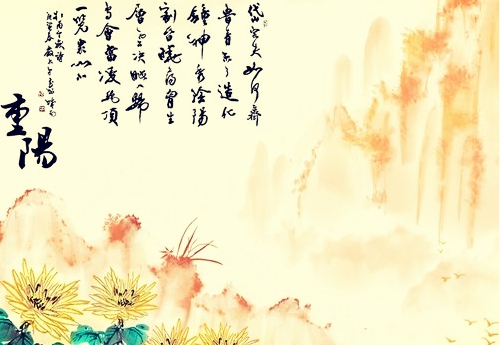 岱宗夫如何齊
魯青未了造化
鍾神秀陰陽
割昏曉盪胸生
層雲決眥入歸
鳥會當凌絕頂
一覽眾山小
重陽